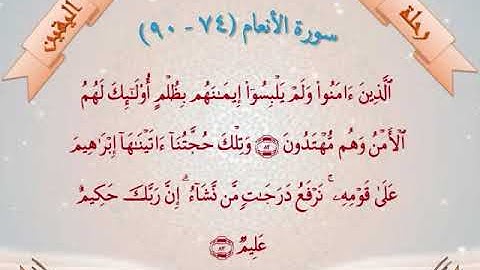 رحلة
اليقين
سورة الأنعام (٧٤ - ٩٠)
ٱلَّذِينَ ءَامَنُوا۟ وَلَمْ يَلْبِسُوٓا۟ إِيمَـٰنَهُم بِظُلْمٍ أُو۟لَـٰٓئِكَ لَهُمُ
ٱلْأَمْنُ وَهُم مُّهْتَدُونَ ٨٢ وَتِلْكَ حُجَّتُنَآ ءَاتَيْنَـٰهَآ إِبْرَٰهِيمَ
عَلَىٰ قَوْمِهِۦ ۚ نَرْفَعُ دَرَجَـٰتٍ مَّن نَّشَآءُ ۗ إِنَّ رَبَّكَ حَكِيمٌ
عَلِيمٌ ٨٣